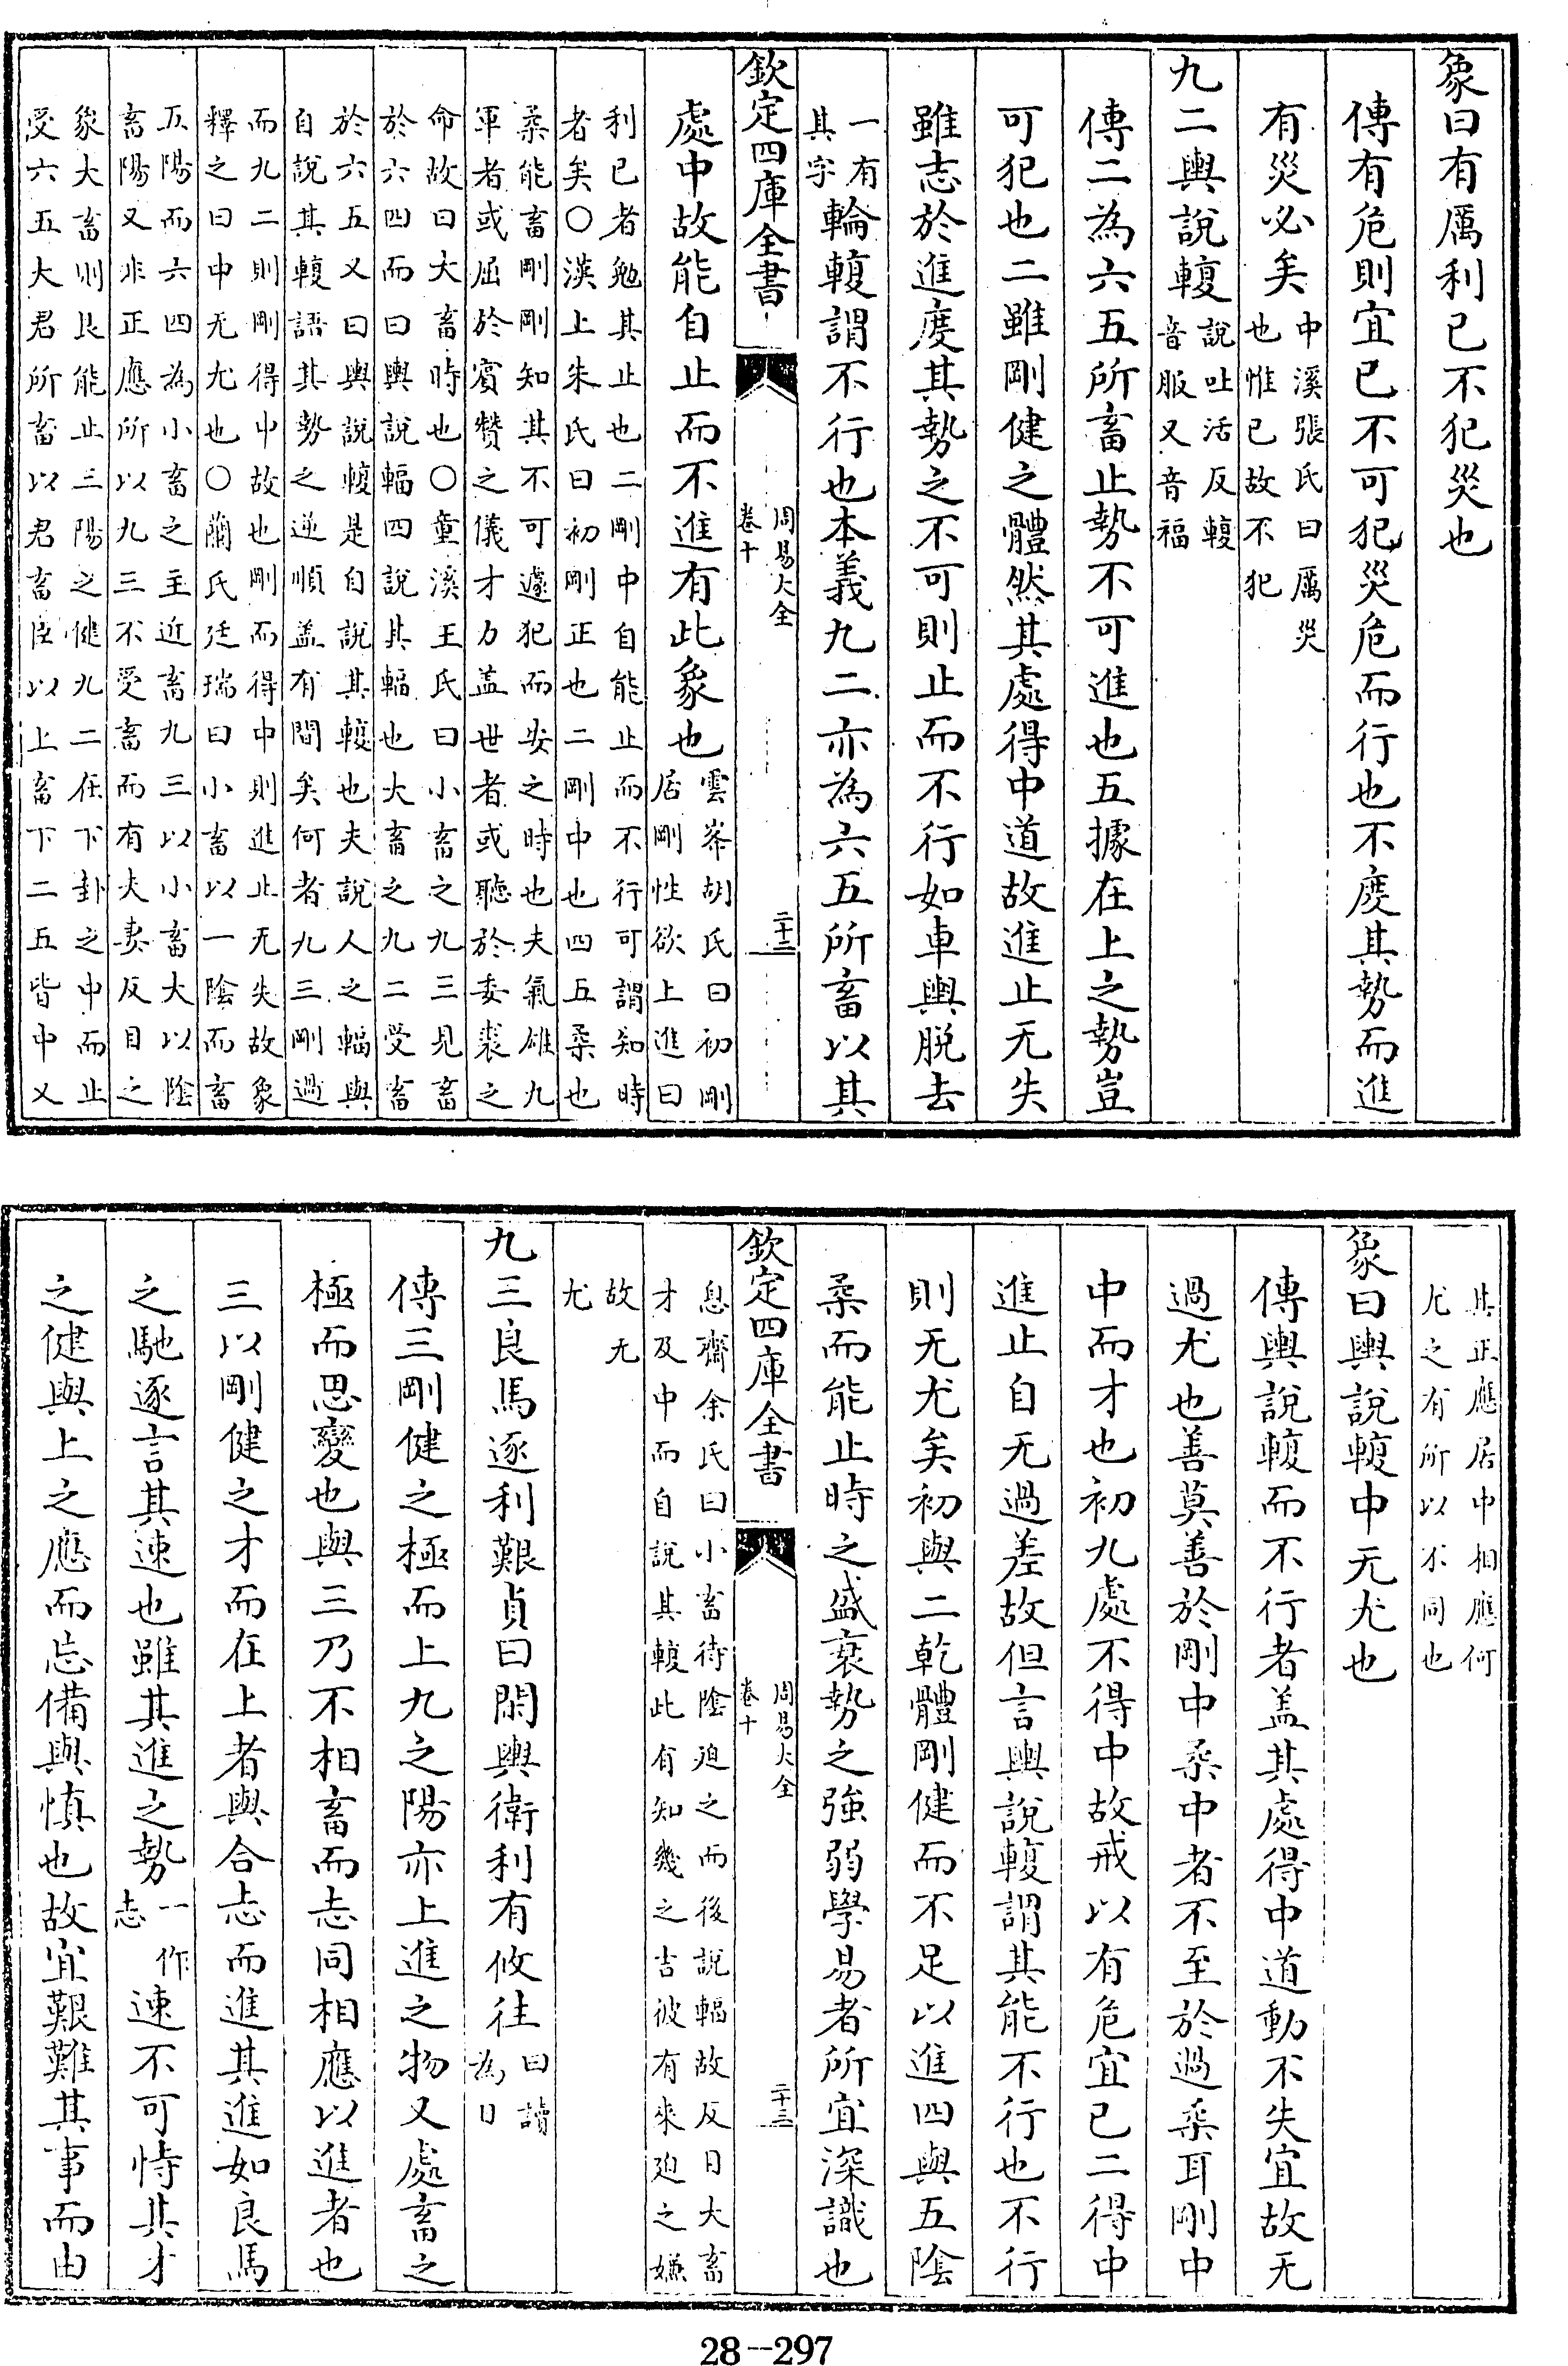 象曰有厲利已不犯災也
傳有危則宜已不可犯災危而行也不度其勢而進
有災必矣中溪張氏曰厲災
也惟已故不犯
九二輿說輹說吐活反輹
音服又音福
傳二為六五所畜止勢不可進也五據在上之勢豈
可犯也二雖剛健之體然其處得中道故進止无失
雖志於進度其勢之不可則止而不行如車輿脫去
一有
其字輪輹謂不行也本義九二亦為六五所畜以其
欽定四庫全書
周易大全
卷十
二十二
處中故能自止而不進有此象也雲峯胡氏曰初剛
居剛性欲上進曰
利已者勉其止也二剛中自能止而不行可謂知時
者矣○漢上朱氏曰初剛正也二剛中也四五柔也
柔能畜剛剛知其不可遽犯而安之時也夫氣雄九
軍者或屈於賓贊之儀才力盖世者或聽於委裘之
命故曰大畜時也○童溪王氏曰小畜之九三見畜
於六四而曰輿說輻四說其輻也大畜之九二受畜
於六五又曰輿說輹是自說其輹也夫說人之輻與
自說其輹語其勢之逆順盖有間矣何者九三剛過
而九二則剛得中故也剛而得中則進止无失故象
釋之曰中无尤也○蘭氏廷瑞曰小畜以一陰而畜
五陽而六四為小畜之主近畜九三以小畜大以陰
畜陽又非正應所以九三不受畜而有夫妻反目之
象大畜則艮能止三陽之健九二在下卦之中而止
受六五大君所畜以君畜臣以上畜下二五皆中又
其正應居中相應何
尤之有所以不同也
象曰輿說輹中无尤也
傳輿說輹而不行者盖其處得中道動不失宜故无
過尤也善莫善於剛中柔中者不至於過柔耳剛中
中而才也初九處不得中故戒以有危宜已二得中
進止自无過差故但言輿說輹謂其能不行也不行
則无尤矣初與二乾體剛健而不足以進四與五陰
柔而能止時之盛衰勢之強弱學易者所宜深識也
欽定四庫全書
周易大全
卷十
二十三
息齋余氏曰小畜待陰迫之而後說輻故反目大畜
才及中而自說其輹此有知幾之吉彼有來迫之嫌
故无
尤
九三良馬逐利艱貞曰閑輿衛利有攸往曰讀
為日
傳三剛健之極而上九之陽亦上進之物又處畜之
極而思變也與三乃不相畜而志同相應以進者也
三以剛健之才而在上者與合志而進其進如良馬
之馳逐言其速也雖其進之勢一作
志速不可恃其才
之健與上之應而忘備與慎也故宜艱難其事而由
28--297